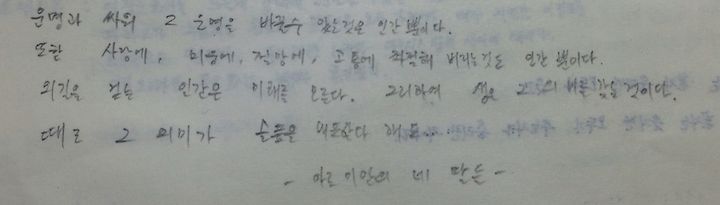 운명과 싸워 그 운명을 바꿀수 있는것은 인간 뿐이다.
또한 사랑에, 미움에, 절망에, 고통에 좌절해 버리는것도 인간 뿐이다.
외길을 걷는 인간은 미래를 모른다. 그리하여 생은 그 의미를 갖는 것이다.
때로 그 의미가 슬픔을 내포한다 해도..
- 아르미안의 네 딸들 -